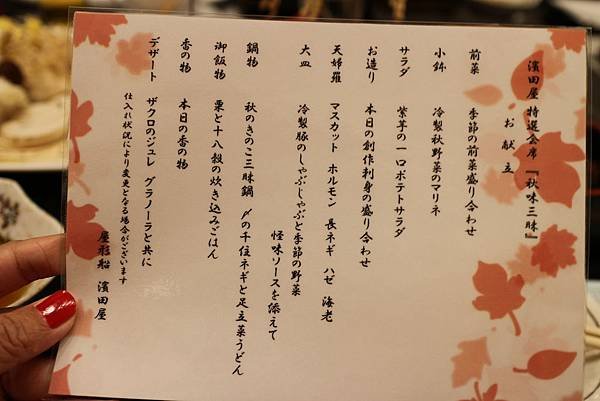 濱田屋 特選会席 『秋味三昧』
お献立
前菜 季節の前菜盛り合わせ
小鉢 冷製秋野菜のマリネ
サラダ 紫芋の一口ポテトサラダ
お造り 本日の創作刺身の盛り合わせ
天婦羅 マスカット ホルモン 長ネギ ハゼ 海老
大皿 冷製豚のしゃぶしゃぶと季節の野菜
怪味ソースを添えて
鍋物 秋のきのこ三昧鍋 〆の千住ネギと足立菜うどん
御飯物 栗と十八穀の炊き込みごはん
香の物 本日の香の物
デザート ザクロのジュレ グラノーラと共に
仕入れ状況により変更となる場合がございます
屋形船 濱田屋